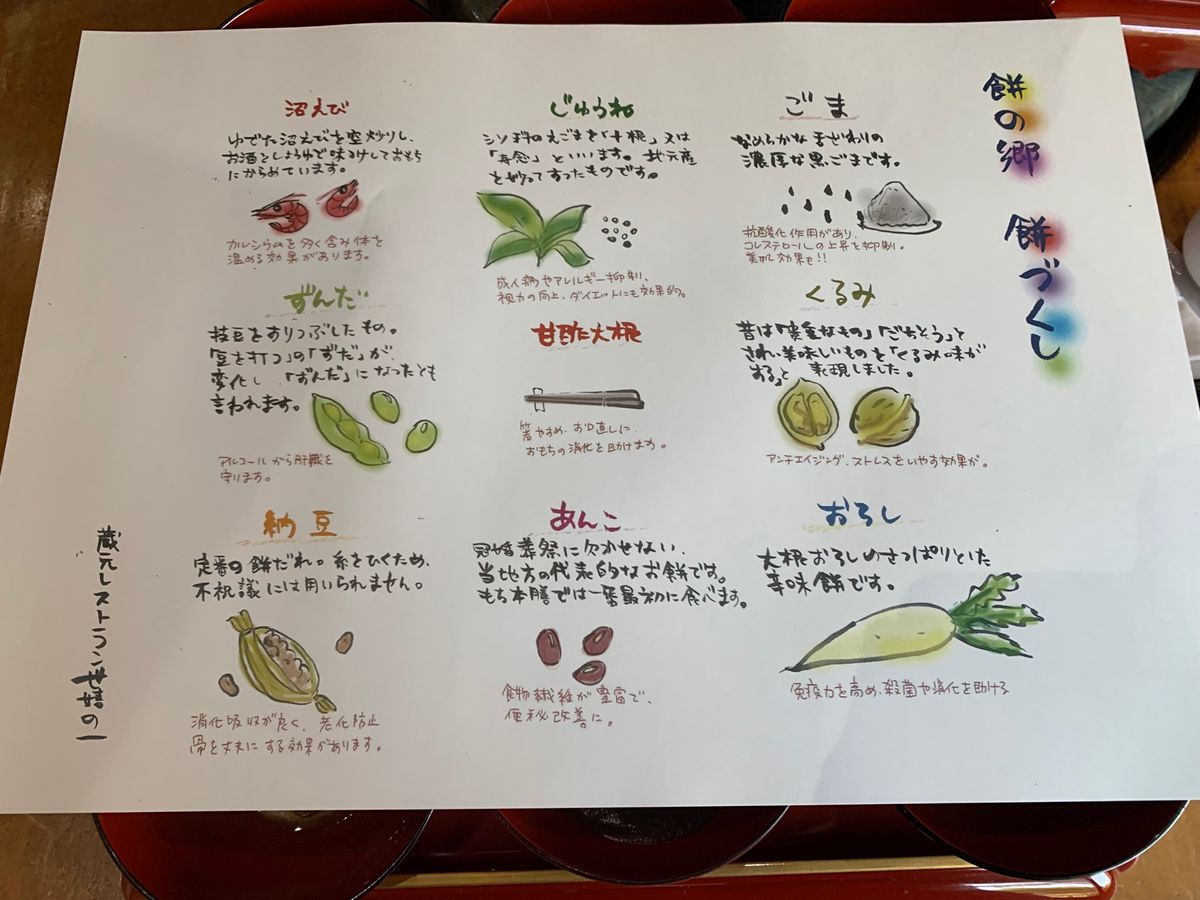 餅の郷 餅づくし
ごま
なめらかな手ざわりの
濃厚な黒ごまです。
抗酸化作用があり、
コレステロールの上昇を抑制。
美肌効果も!!
じゅうね
シソ科のえごまを「十根」又は
「再念」といいます。地元産
を炒ってすったものです。
成人病やアレルギー抑制、
視力の向上、ダイエットにも効果的。
沼えび
ゆでた沼えびを空炒りし、
お酒としょうゆで味つけしておもち
にからめています。
カルシウムを多く含み体を
温める効果があります。
くるみ
昔は「貴重なもの」「ごちそう」と
され、美味しいものを「くるみ味が
おる」と 表現しました。
アンチエイジング、ストレスをいやす効果が。
甘酢大根
箸やすめ、お口直しに、
おもちの消化を助けます。
ずんだ
枝豆をすりつぶしたもの。
「豆を打つ」の「ずだ」が、
変化し、「ずんだ」になったとも
言われます。
アルコールから肝臓を
守ります。
おろし
大根おろしのさっぱりとした
辛味餅です。
免疫力を高め、殺菌や消化を助ける
あんこ
冠婚葬祭に欠かせない、
当地方の代表的なお餅です。
もち本膳では一番最初に食べます。
食物繊維が豊富で、
便秘改善に。
納豆
定番の餅だれ。糸をひくため、
不祝議には用いられません。
消化吸収が良く、老化防止
骨を丈夫にする効果があります。
蔵元レストラン世嬉の一